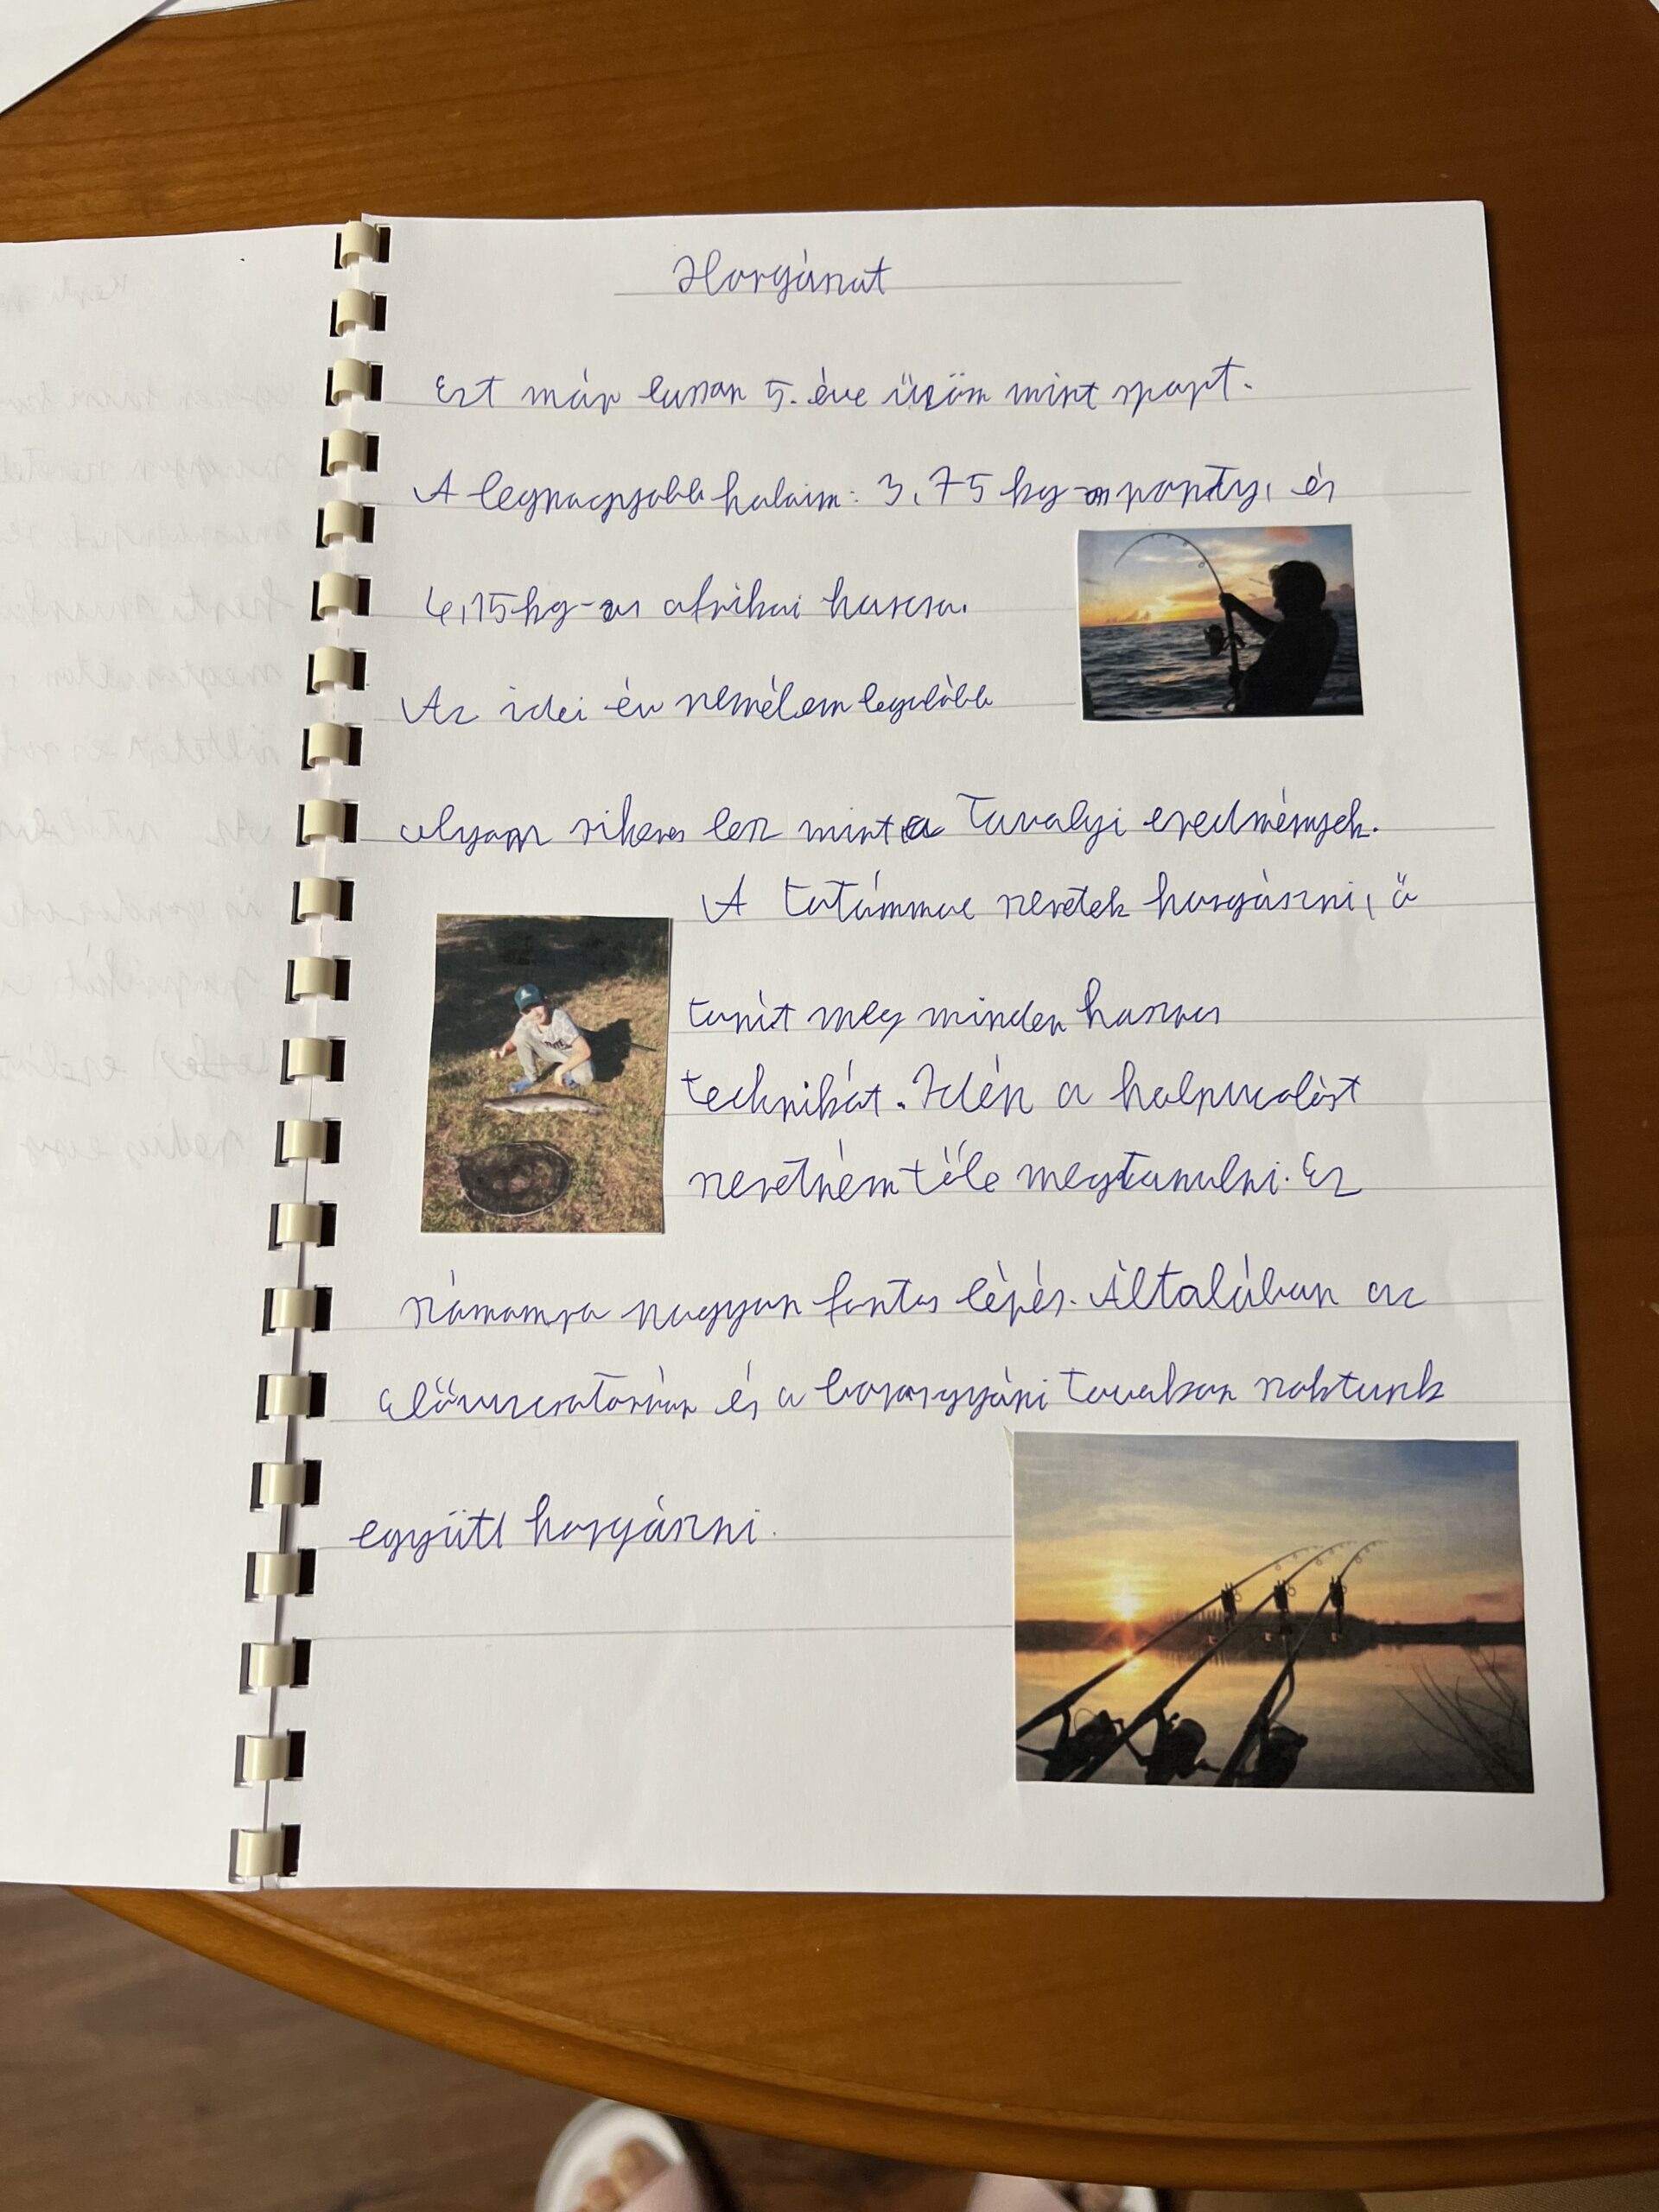 Horgászat
Ezt már lassan 5. éve űzöm mint sport.
A legnagyobb halaim: 3,75 kg-os ponty, és
4,15 kg-os afrikai harcsa.
Az idei év remélem legalább
olyan sikeres lesz mint a tavalyi eredmények.
A tatámmal szeretek horgászni, ő
tanít meg minden hasznos
technikát. Idén a halpucolást
szeretném tőle megtanulni. Ez
számomra nagyon fontos lépés. Általában az
és a tavakban szoktunk
együtt horgászni.